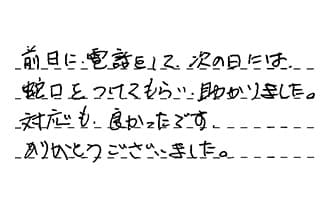 前日に電話をして、次の日には、
蛇口をつけてもらい助かりました。
対応も、良かったです。
ありがとうございました。